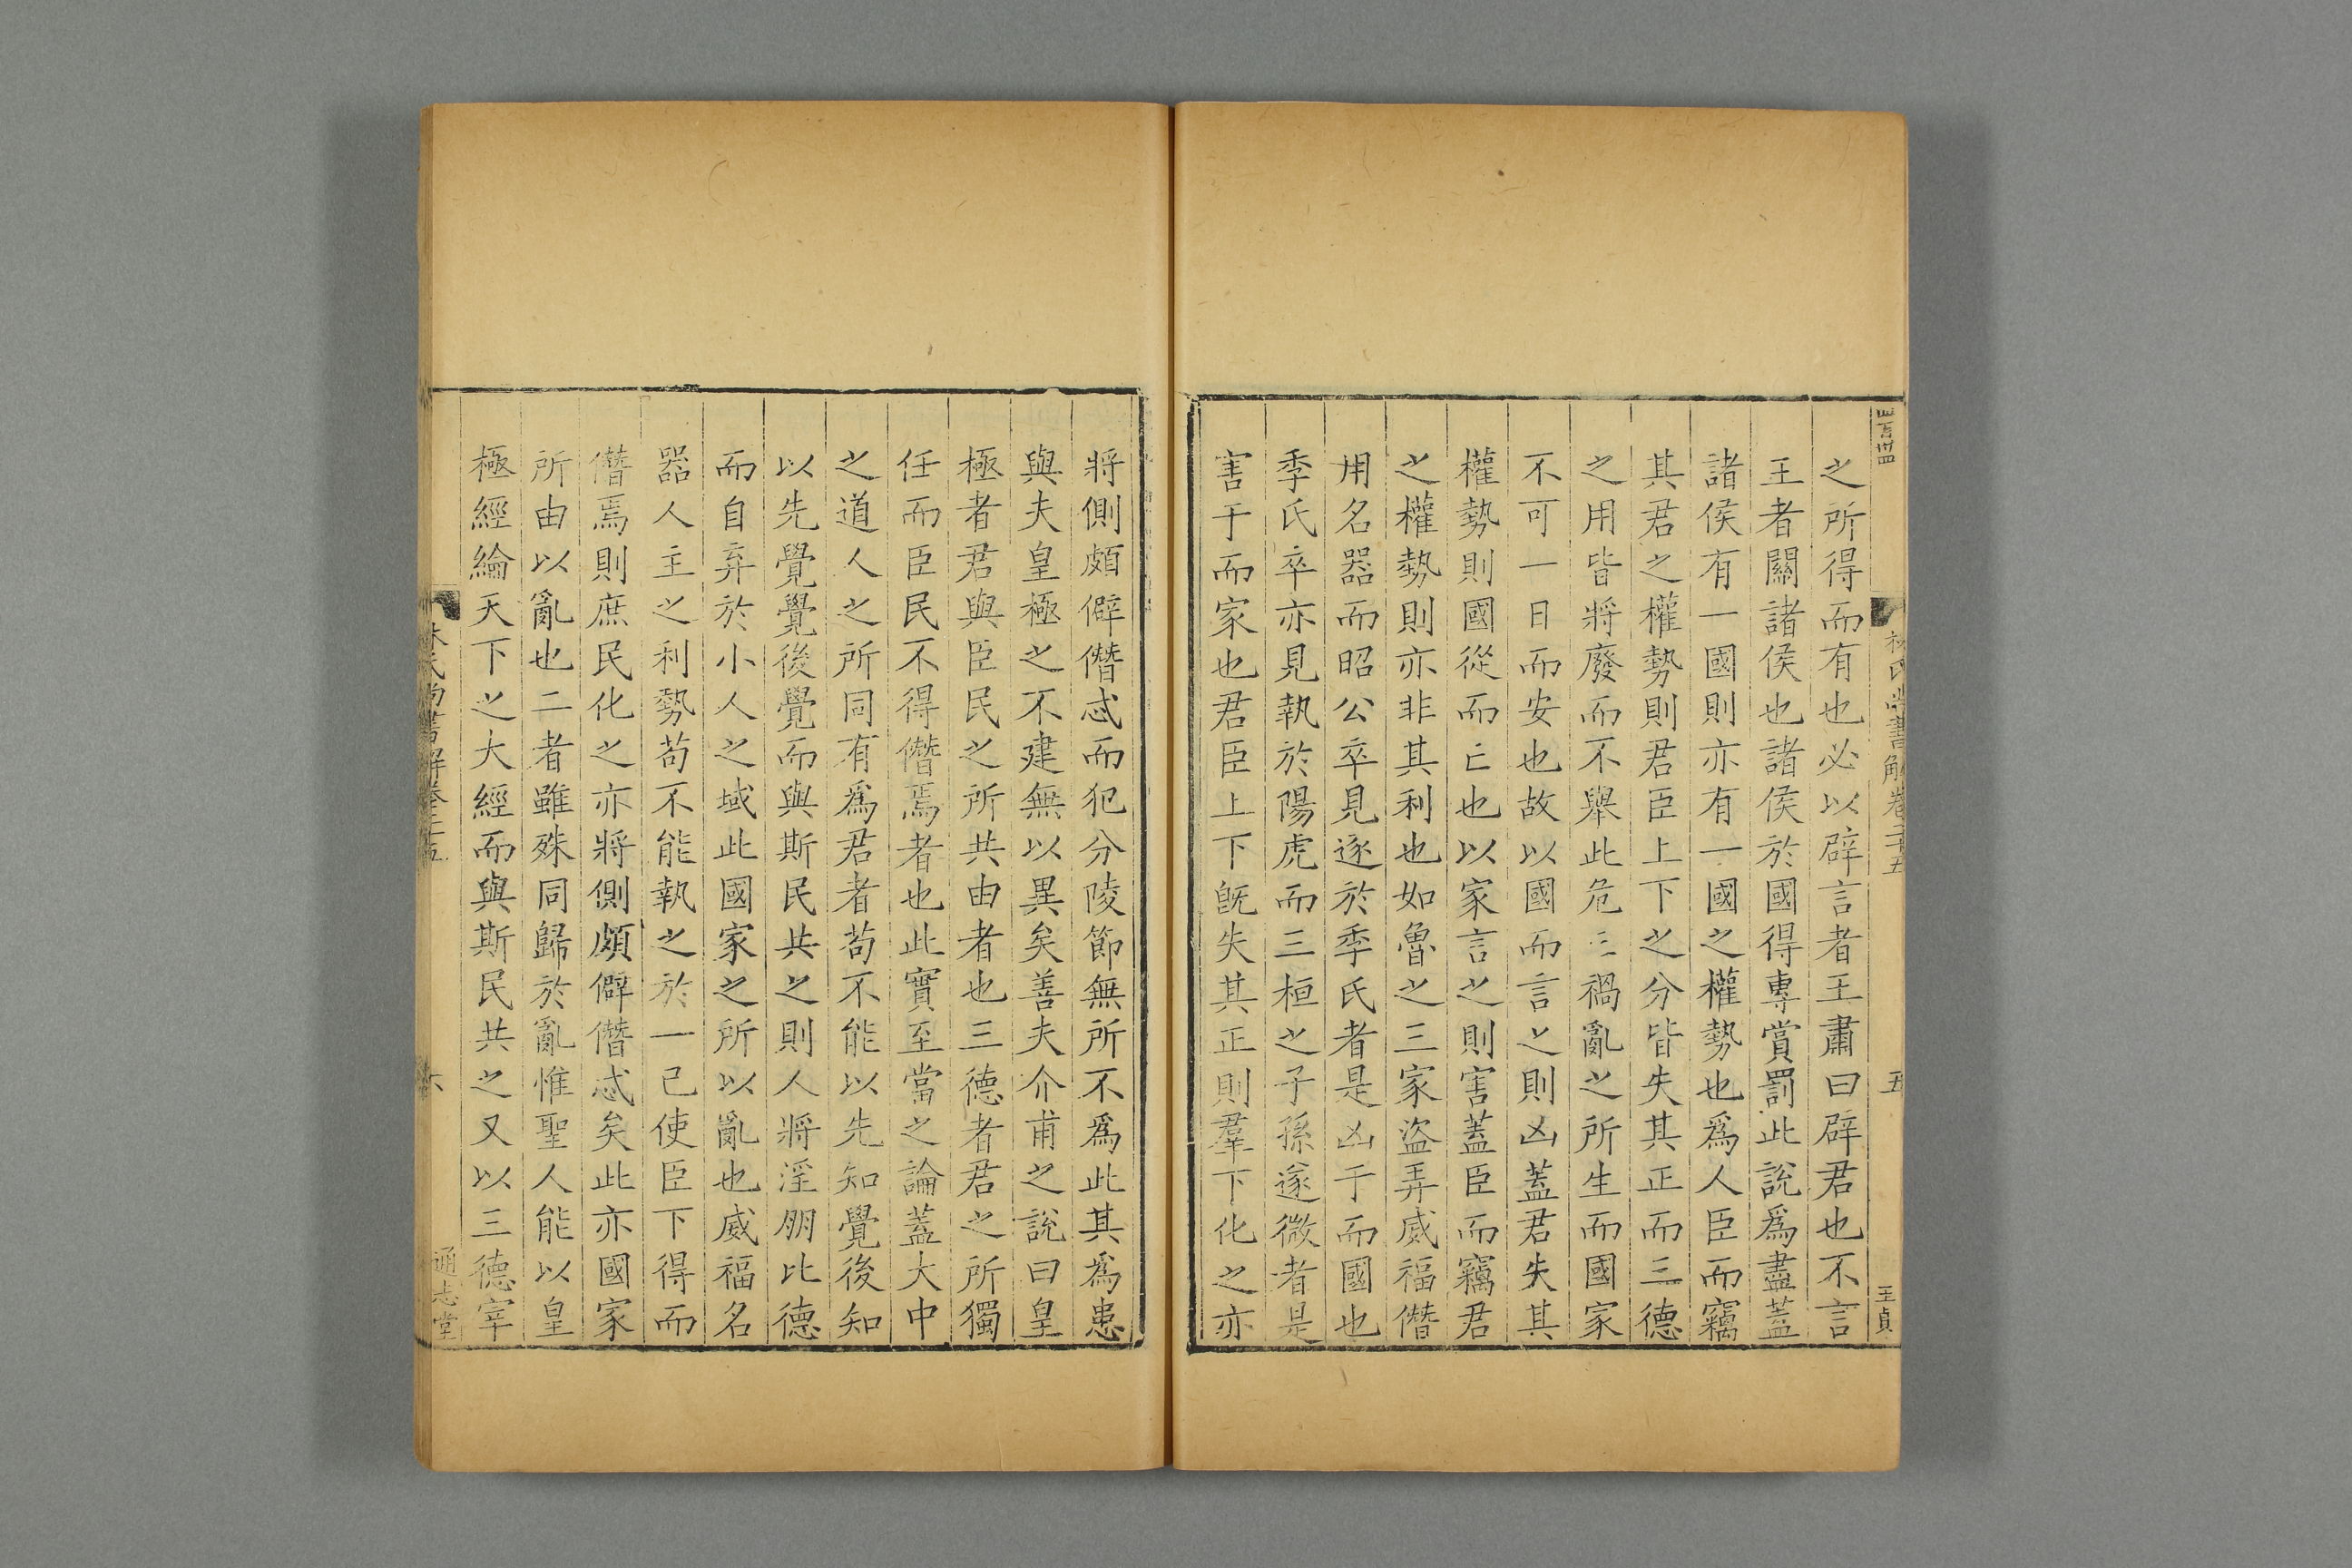 林氏尚書解卷二十五
五
王貞
之所得而有也必以辟言者王肅曰辟君也不言
王者關諸侯也諸侯於國得專賞罰此說為盡蓋
諸侯有一國則亦有一國之權勢也為人臣而竊
其君之權勢則君臣上下之分皆失其正而三德
之用皆將廢而不舉此危亡禍亂之所生而國家
不可一日而安也故以國而言之則凶蓋君失其
權勢則國從而亡也以家言之則害蓋臣而竊君
之權勢則亦非其利也如魯之三家盜弄威福僭
用名器而昭公卒見逐於季氏者是凶于而國也
季氏卒亦見執於陽虎而三桓之子孫遂微者是
害于而家也君臣上下旣失其正則羣下化之亦
將側頗僻僭忒而犯分陵節無所不爲此其爲患
與夫皇極之不建無以異矣善夫介甫之說曰皇
極者君與臣民之所共由者也三德者君之所獨
任而臣民不得僭焉者也此實至當之論蓋大中
之道人之所同有爲君者苟不能以先知覺後知
以先覺覺後覺而與斯民共之則人將淫朋比德
而自弃於小人之域此國家之所以亂也威福名
器人主之利勢苟不能執之於一己使臣下得而
僭焉則庶民化之亦將側頗僻僭忒矣此亦國家
所由以亂也二者雖殊同歸於亂惟聖人能以皇
極經綸天下之大經而與斯民共之又以三德宰
林氏尚書解卷二十五
六
通志堂